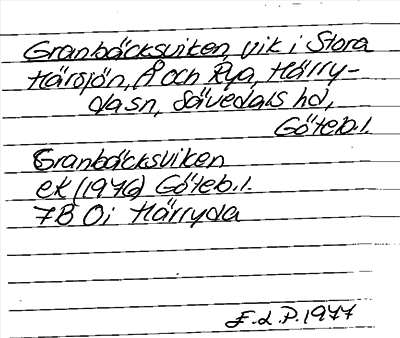 Granbäcksviken, vik i Stora
Härsjön, Å och Rya, Härry-
da sn, Sävedals hd,
Göteb.l.
Granbäcksviken
ek (1976) Göteb.l.
7B 0i Härryda
E.L.P. 1977